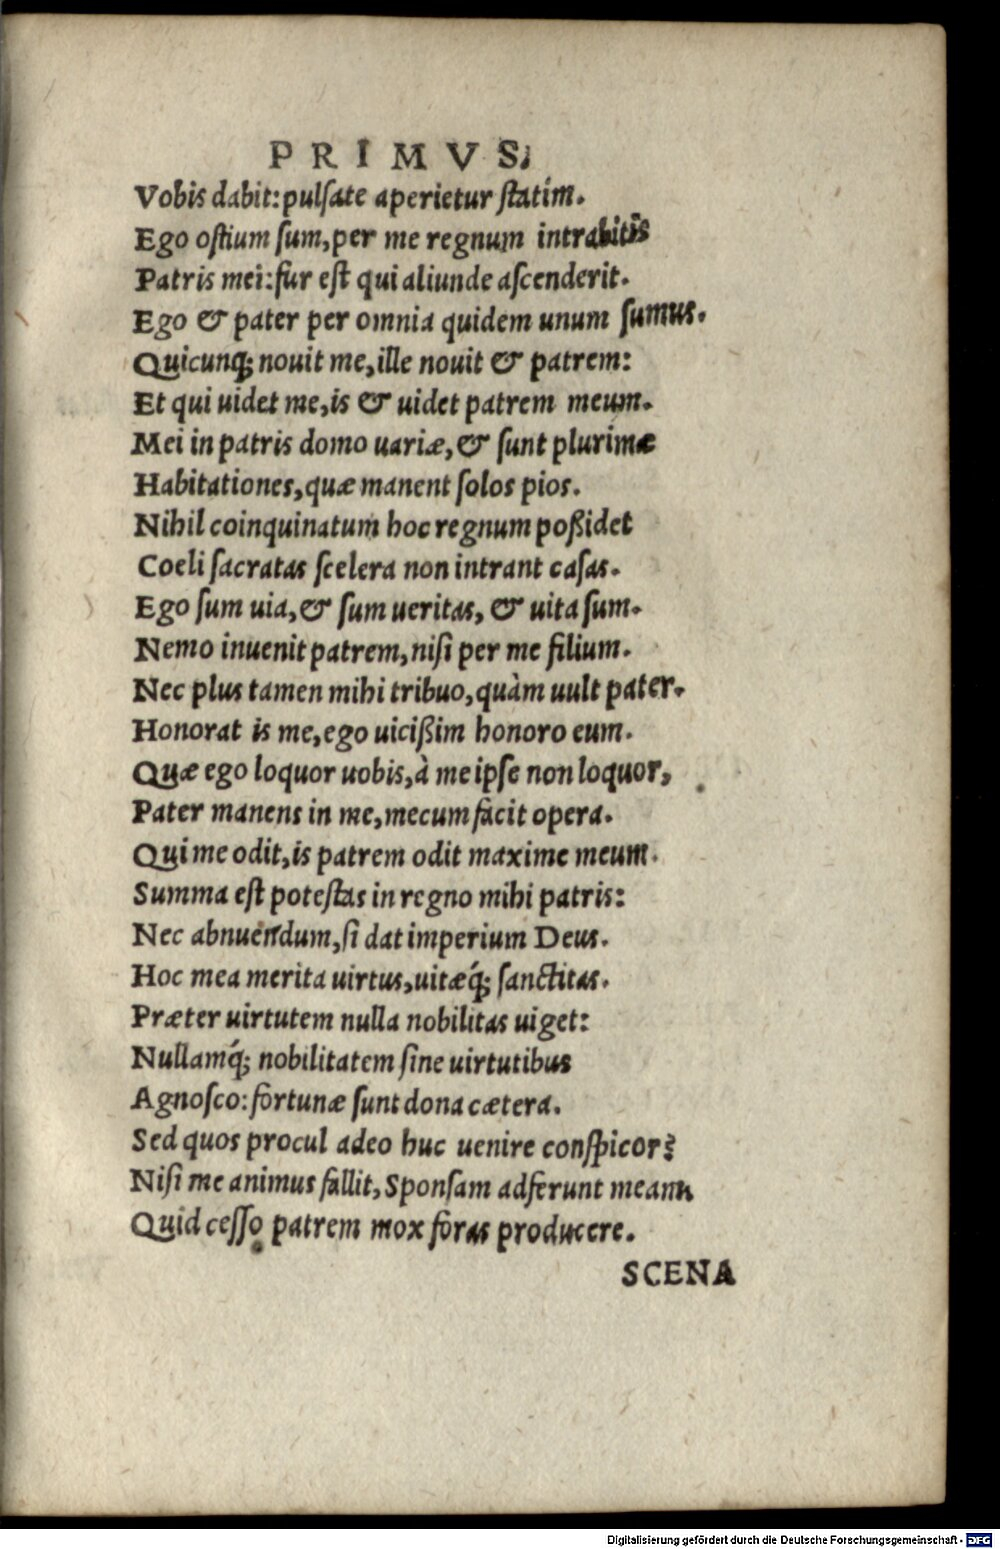 PRIMVS.
Vobis dabit: pulſate aperietur ſtatim.
Ego oſtium ſum, per me regnum intrabitis
Patris mei: fur eſt qui aliunde aſcenderit.
Ego & pater per omnia quidem unum ſumus.
Quicunq; nouit me, ille nouit & patrem:
Et qui uidet me, is & uidet patrem meum.
Mei in patris domo uariæ, & ſunt plurimæ
Habitationes, quæ manent ſolos pios.
Nihil coinquinatum hoc regnum poßidet
Coeli ſacratas ſcelera non intrant caſas.
Ego ſum uia, & ſum ueritas, & uita ſum.
Nemo inuenit patrem, niſi per me filium.
Nec plus tamen mihi tribuo, quàm uult pater.
Honorat is me, ego uicißim honoro eum.
Quæ ego loquor uobis, à me ipſe non loquor,
Pater manens in me, mecum facit opera.
Qui me odit, is patrem odit maxime meum.
Summa eſt poteſtas in regno mihi patris:
Nec abnuendum, ſi dat imperium Deus.
Hoc mea merita uirtus, uitæq́; ſanctitas.
Præter uirtutem nulla nobilitas uiget:
Nullamq́; nobilitatem ſine uirtutibus
Agnoſco: fortunæ ſunt dona cætera.
Sed quos procul adeo huc uenire conſpicor?
Niſi me animus fallit, Sponſam adferunt meam
Quid ceſſo patrem mox foras producere.
SCENA
Digitalisierung gefördert durch die Deutsche Forschungsgemeinschaft - DFG